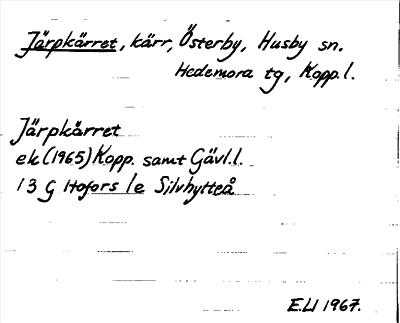 Järpkärret, kärr, Österby, Husby sn.
Hedemora tg, Kopp. l.
Järpkärret
ek (1965) Kopp. samt Gävl. l.
13 G Hofors 1e Silvhytteå
E.U 1967.